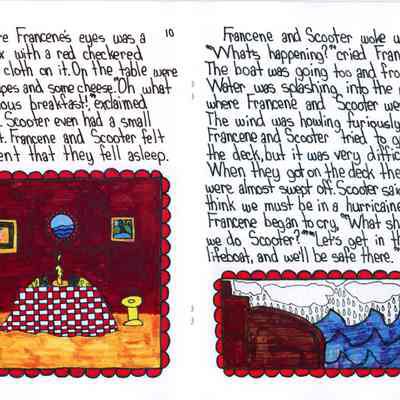 re Francene's eyes was a
x with a red checkered
cloth on it. On the table were
pes and some cheese. "Oh what
ious breakfast!" exclaimed
. Scooter even had a small
t. Francene and Scooter felt
ent that they fell asleep.
10
Francene and Scooter woke u
"What's happening?" cried Fran
The boat was going to and fro
Water was splashing into the
where Francene and Scooter we
The wind was howling furiously
Francene and Scooter tried to g
the deck, but it was very diffic
When they got on the deck the
were almost swept off. Scooter said
think we must be in a hurricane
Francene began to cry, "What sh
we do Scooter?" "Let's get in t
lifeboat, and we'll be safe there."